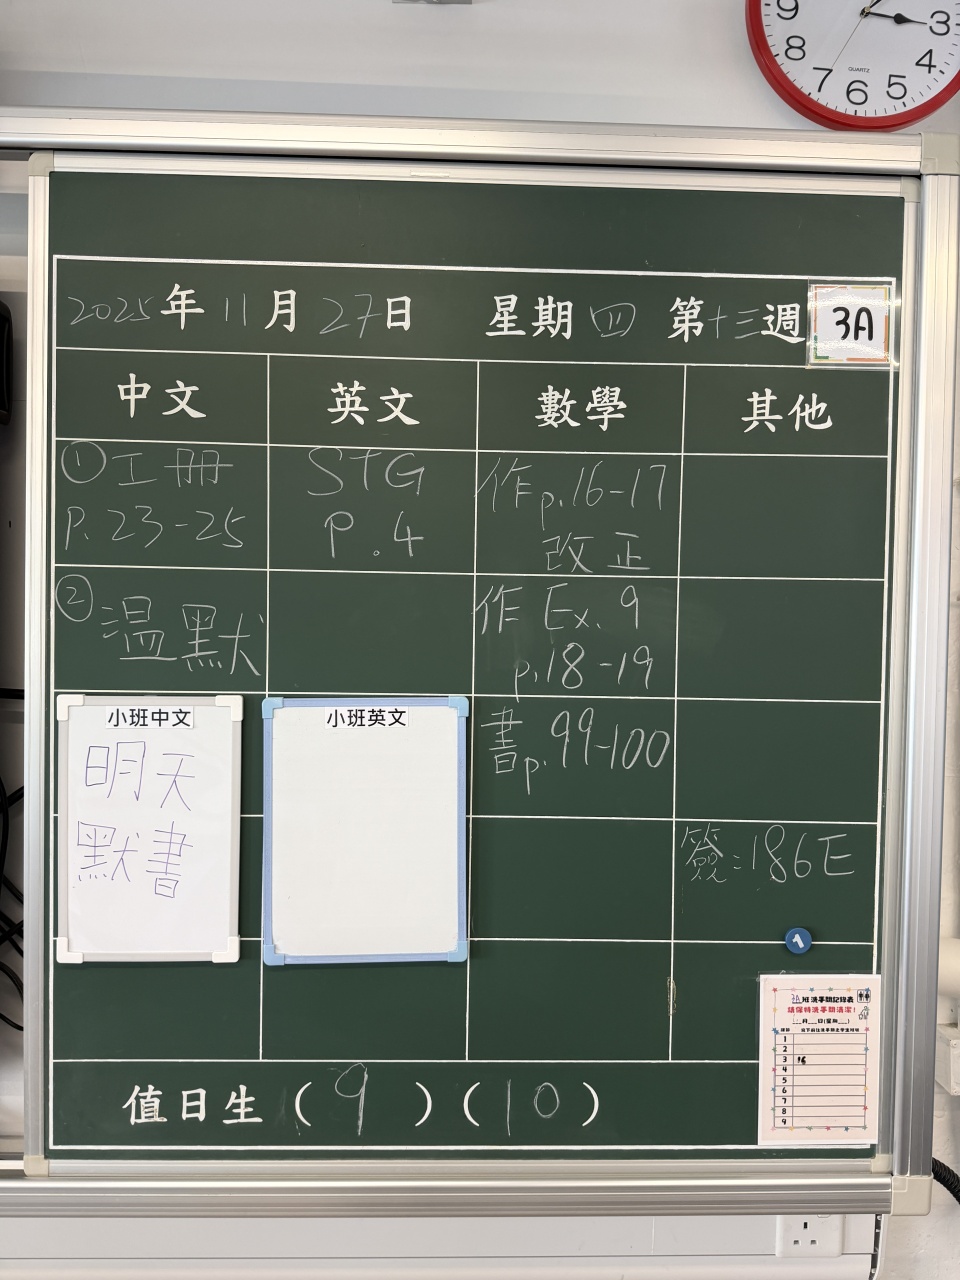 9
3
8
4
7
6
5
QUARTZ
2025年11月27日 星期四 第十三週 3A
中文 英文 數學 其他
①工冊
P.23-25
STG
P.4
作p.16-17
改正
②溫默
作 Ex.9
p.18-19
小班中文
明天
默書
小班英文
書p.99-100
簽:186E
1
3A班洗手間記錄表
請保持洗手間清潔!
1
2
3 16
4
5
6
7
8
9
值日生(9)(10)